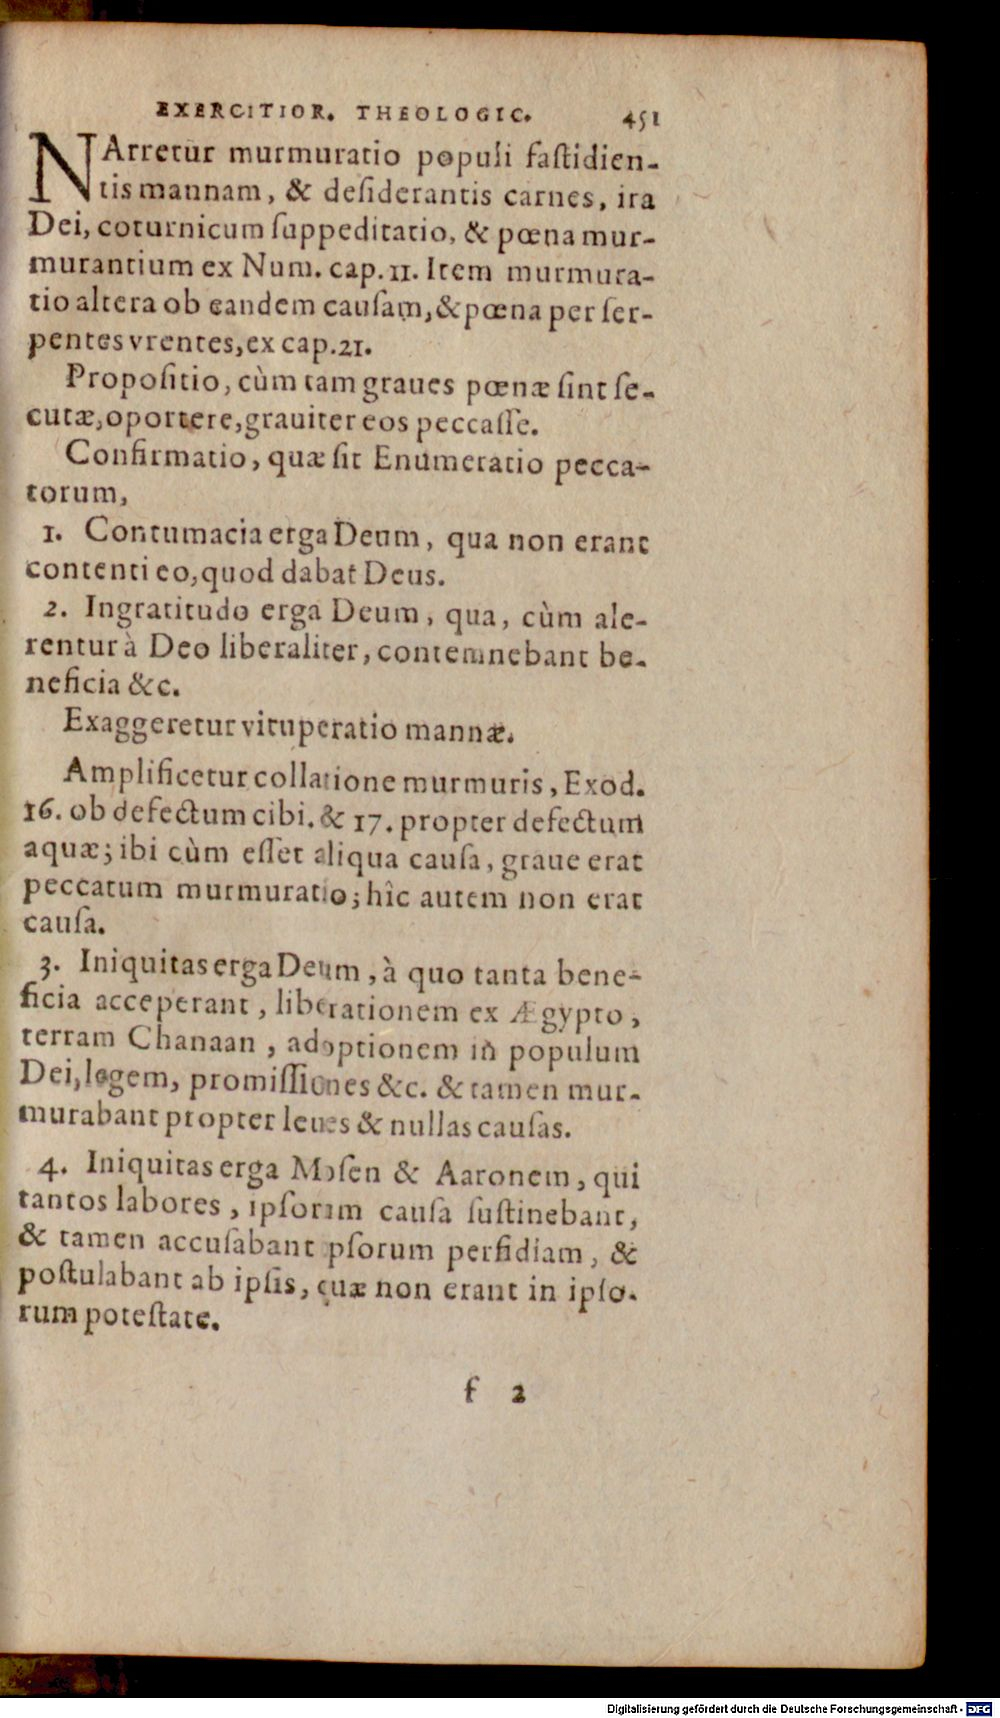 EXERCITIOR. THEOLOGIC. 451
NArretur murmuratio populi faſtidien-
tis mannam, & deſiderantis carnes, ira
Dei, coturnicum ſuppeditatio, & pœna mur-
murantium ex Num. cap. 11. Item murmura-
tio altera ob eandem cauſam, & pœna per ſer-
pentes vrentes, ex cap. 21.
Propoſitio, cùm tam graues pœnæ ſint ſe-
cutæ, oportere, grauiter eos peccaſſe.
Confirmatio, quæ ſit Enumeratio pecca-
torum,
1. Contumacia erga Deum, qua non erant
contenti eo, quod dabat Deus.
2. Ingratitudo erga Deum, qua, cùm ale-
rentur à Deo liberaliter, contemnebant be-
neficia &c.
Exaggeretur vituperatio mannæ.
Amplificetur collatione murmuris, Exod.
16. ob defectum cibi. & 17. propter defectum
aquæ; ibi cùm eſſet aliqua cauſa, graue erat
peccatum murmuratio; hîc autem non erat
cauſa.
3. Iniquitas erga Deum, à quo tanta bene-
ficia acceperant, liberationem ex Ægypto,
terram Chanaan, adoptionem in populum
Dei, legem, promiſſiones &c. & tamen mur-
murabant propter leues & nullas cauſas.
4. Iniquitas erga Moſen & Aaronem, qui
tantos labores, ipſorum cauſa ſuſtinebant,
& tamen accuſabant ipſorum perfidiam, &
poſtulabant ab ipſis, quæ non erant in ipſo-
rum poteſtate.
f 2
Digitalisierung gefördert durch die Deutsche Forschungsgemeinschaft - DFG